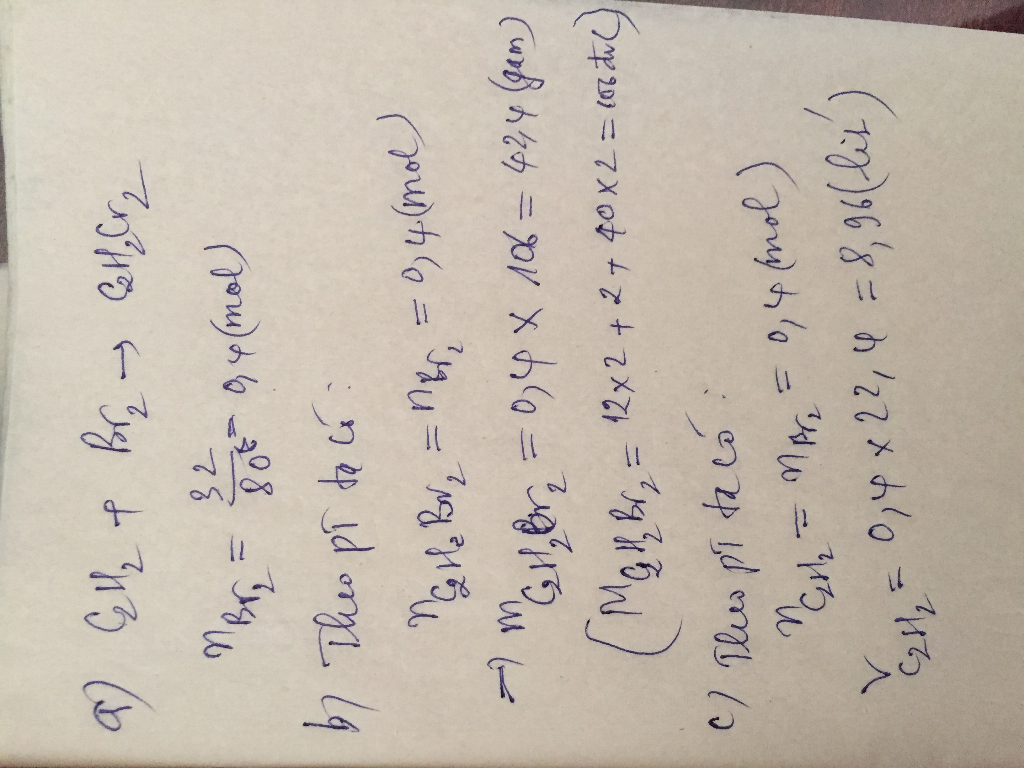 a) C₂H₂ + Br₂ → C₂H₂Cr₂
n_Br₂ = 32/80 = 0,4 (mol)
b) Theo pT ta có :
n_C₂H₂Br₂ = n_Br₂ = 0,4 (mol)
→ m_C₂H₂Br₂ = 0,4 × 106 = 42,4 (gam)
(M_C₂H₂Br₂ = 12x2 + 2 + 40x2 = 106 đvc)
c) Theo pT ta có :
n_C₂H₂ = n_Br₂ = 0,4 (mol)
V_C₂H₂ = 0,4 x 22,4 = 8,96 (lít)